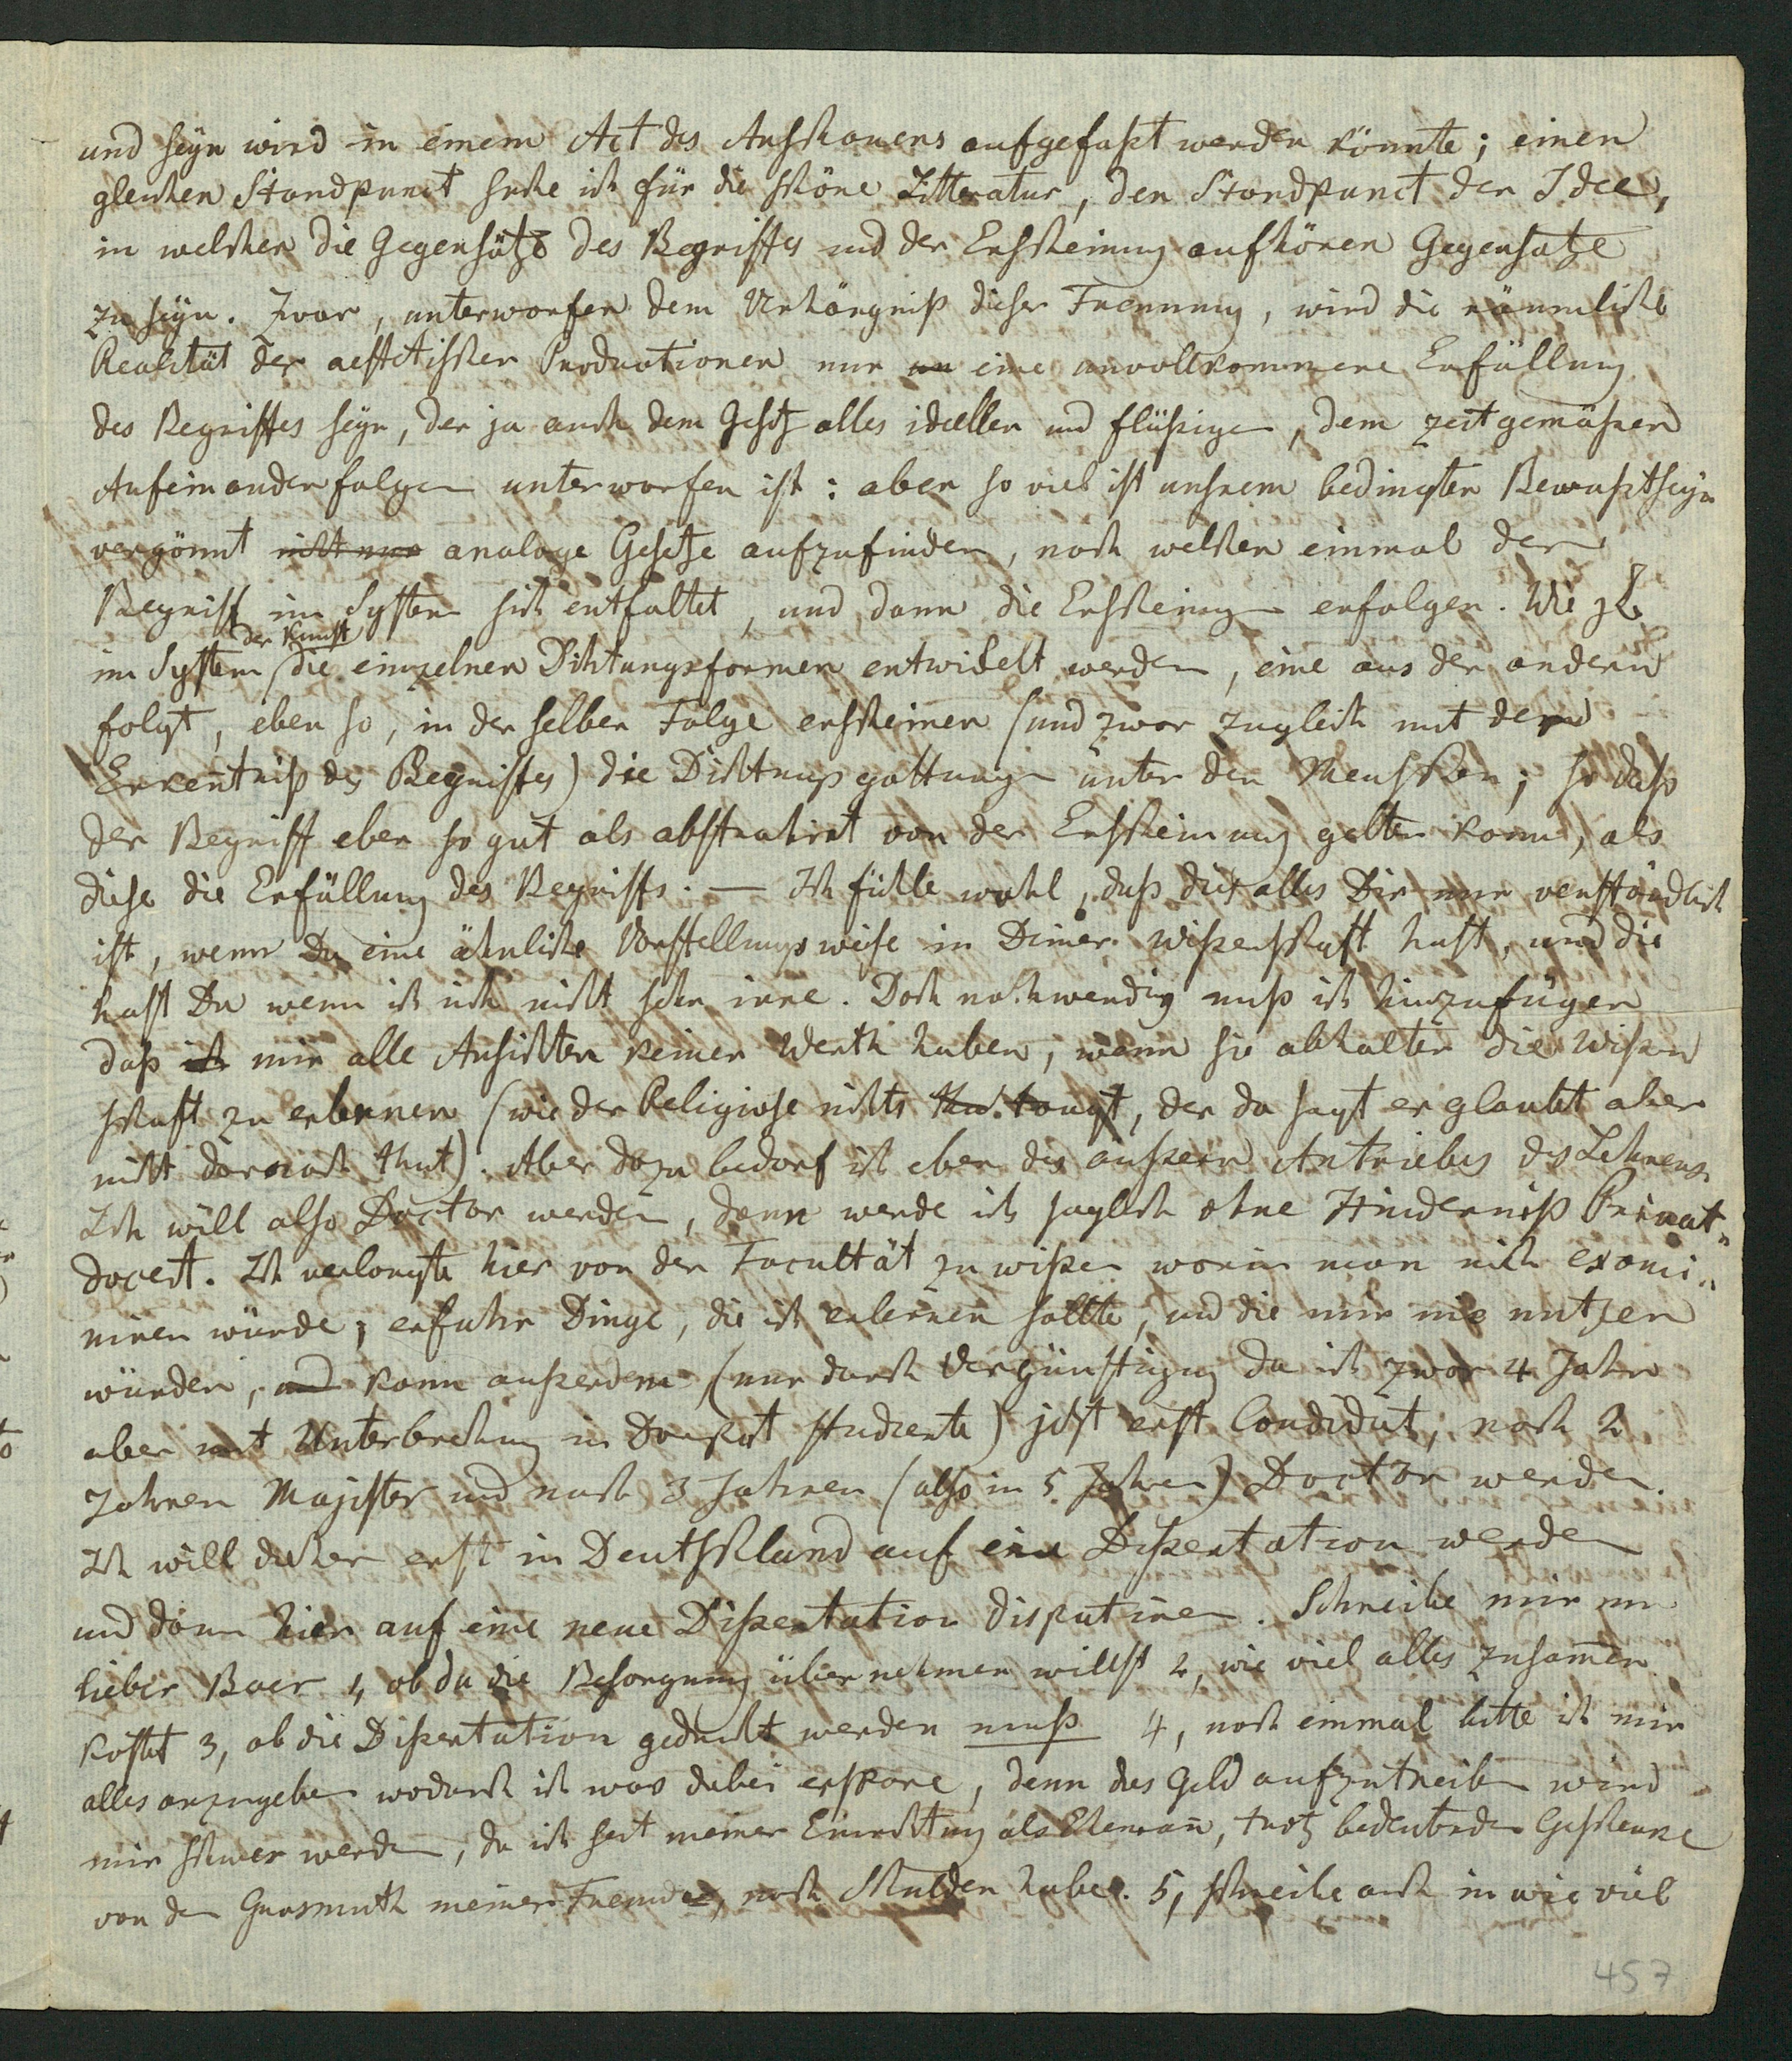 und seyn wird in einem Act des Anschauens aufgefaßt werden könnte; einen
gleichen Standpunct suche ich für die schöne Litteratur, den Standpunct der Idee,
in welcher die Gegensätze des Begriffes und der Erscheinung aufhören Gegensatze
zu seyn. Zwar, unterworfen dem Verhängniß dieser Trennung, wird die räumliche
Realität der aesthetischen Productionen nur an eine unvollkommene Erfüllung
des Begriffes seyn, der ja auch dem Gesetz alles ideellen und flüßigen, dem zeitgemäßen
Aufeinanderfolgen unterworfen ist: aber so viel ist unsrem bedingten Bewußtseyn
vergönnt nicht nur analoge Gesetze aufzufinden, nach welchen einmal der
Begriff im System sich entfaltet, und dann die Erscheinungen erfolgen. Wie z.B.
der Kunst
im System die einzelnen Dichtungsformen entwickelt werden, eine aus der andern
folgt, eben so, in derselben Folge erscheinen (und zwar zugleich mit der
Erkentniß des Begriffes) die Dichtungsgattungen unter den Menschen; so daß
der Begriff eben so gut als abstrahirt von der Erscheinung gelten kann, als
diese die Erfüllung des Begriffs. — Ich fühle wohl, daß dieß alles Dir nur verständlich
ist, wenn Du eine ähnliche Vorstellungsweise in Deiner Wißenschaft hast, und die
hast Du wenn ich mich nicht sehr irre. Doch nothwendig muß ich hinzufügen
daß ich mir alle Ansichten keinen Werth haben, wenn sie abhalten die Wißen
schaft zu erlernen (wie der Religiose nichts taugt, der da sagt er glaubt aber
nicht darnach thut). Aber dazu bedarf ich eben des äußern Antriebes des Lehrens.
Ich will also Doctor werden, dann werde ich sogleich ohne Hinderniß Privat-
docent. Ich verlangte hier von der Facultät zu wißen worin man mich exami-
niren würde; erfuhr Dinge, die ich erlernen sollte, und die mir nie nutzen
würden, und kann außerdem (nur durch Vergünstigung da ich zwar 4 Jahr
aber mit Unterbrechung in Dorpat studierte) jetzt erst Candidat, nach 2
Jahren Magister und nach 3 Jahren (also in 5 Jahren) Doctor werden.
Ich will daher erst in Deutschland auf eine Dißertation werden
und dann hier auf eine neue Dißertation disputiren. Schreibe mir nun
lieber Baer 1, ob du die Besorgung übernehmen willst 2, wie viel alles zusamen
kostet 3, ob die Dißertation gedruckt werden muß 4, noch einmal bitte ich mir
alles anzugeben wodurch ich was dabei erspare, denn das Geld aufzutreiben wird
mir schwer werden, da ich seit meiner Einrichtung als Ehemañ, trotz bedeutender Geschenke
von der Grosmuth meiner Freunde, noch Schulden habe. 5, schreibe auch in wie viel
457